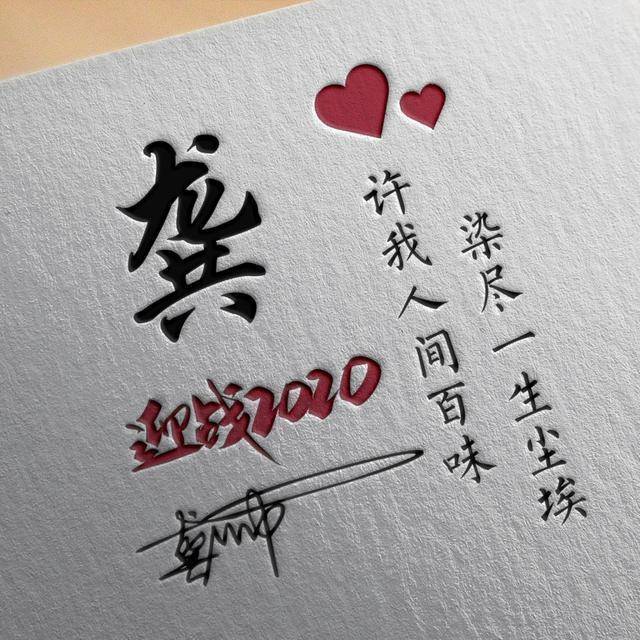 龚
迎战2020
染尽一生尘埃
许我人间百味